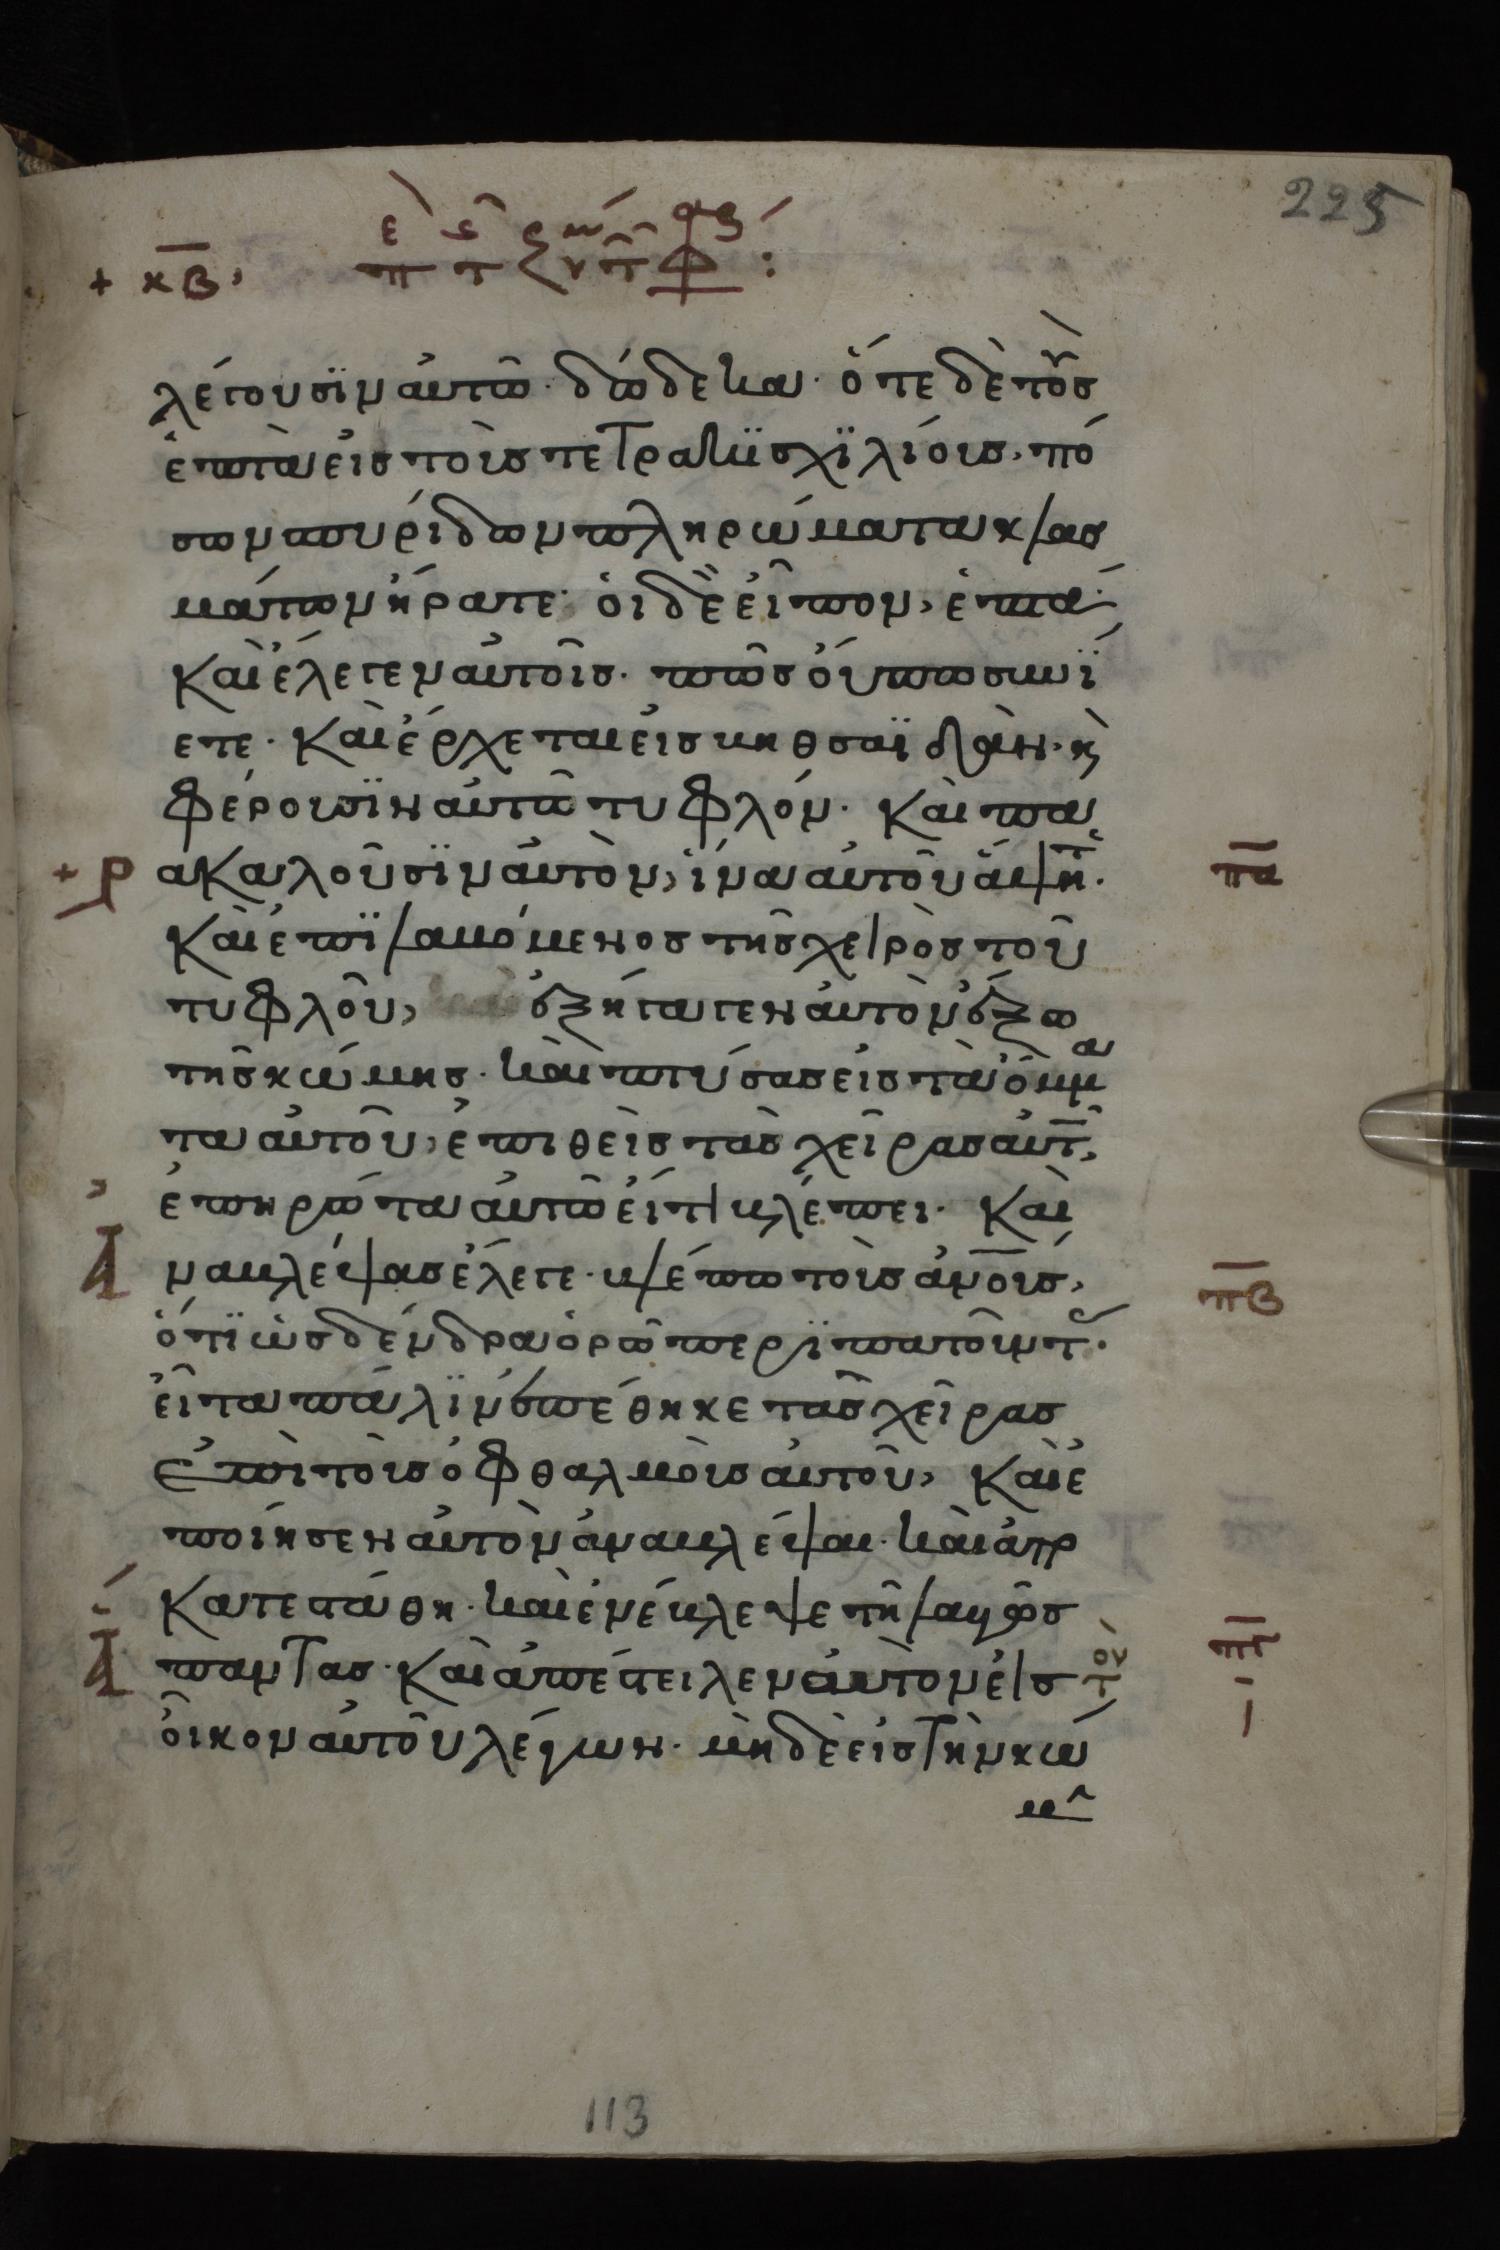 225
+ κβ, πε τ ν τ φ :
λέγουσϊν αυτῶ· δώδεκα· ὅτε δὲ τοὺς
ἑπτὰ εἰς τοὺς τετρακϊσχϊλίους, πό
σων σπυρίδων πληρώματα κλασ
μάτων ἤρατε· οἱ δὲ εἶπον, ἑπτά·
Καὶ ἔλεγεν αὐτοῖς· πῶς οὔπω συνϊ
ετε· Καὶ ἔρχεται εἰς βηθσαϊδάν· κ
φέρουσϊν αὐτῶ τυφλόν· Καὶ πα
ρακαλοῦσϊν αὐτὸν, ἵνα αὐτοῦ ἅψητ·
Καὶ ἐπϊλαβόμενος τῆς χειρὸς τοῦ
τυφλοῦ, ἐξήγαγεν αὐτὸν ἔξω
τῆς κώμης· καὶ πτύσας εἰς τὰ ὄμμα
τα αὐτοῦ, ἐπιθεὶς τὰς χεῖρας αὐτ,
ἐπηρώτα αὐτῶ εἴ τι βλέπει· Καὶ
ἀναβλέψας ἔλεγε· βλέπω τοὺς ἀνους,
ὅτϊ ὡς δένδρα ὁρῶ περϊπατοῦντ·
εἶτα πάλϊν ἐπέθηκε τὰς χεῖρας
ἐπὶ τοὺς ὀφθαλμοὺς αὐτοῦ, Καὶ ἐ
ποίησεν αὐτὸν ἀναβλέψαι· καὶ ἀπο
Κατεστάθη· καὶ ἐνέβλεψε τηλαυγῶς
παντας· Καὶ ἀπέστειλεν αὐτὸν εἰς τὸν
οἶκον αὐτοῦ λέγων· μὴδὲ εἰς τὴν κώ
μην
πα
πβ
πγ
113